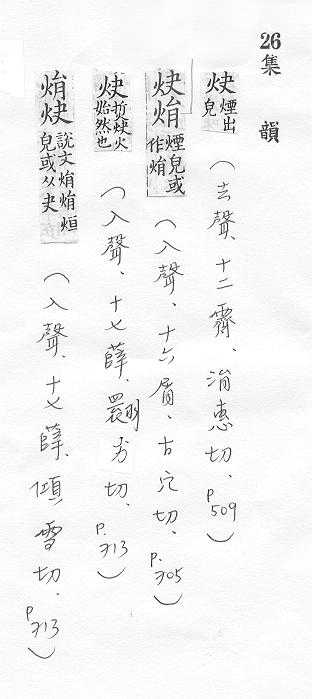 26集 韻
炔 煙出皃 (去聲、十二霽、涓惠切、p509)
炔焆 煙皃或作焆 (入聲、十六屑、古穴切、p.705)
炔 炔火始然也 (入聲、十七薛、翾劣切、p.713)
焆炔 說文焆焆烜皃或从夬 (入聲、十七薛、傾雪切、p713)